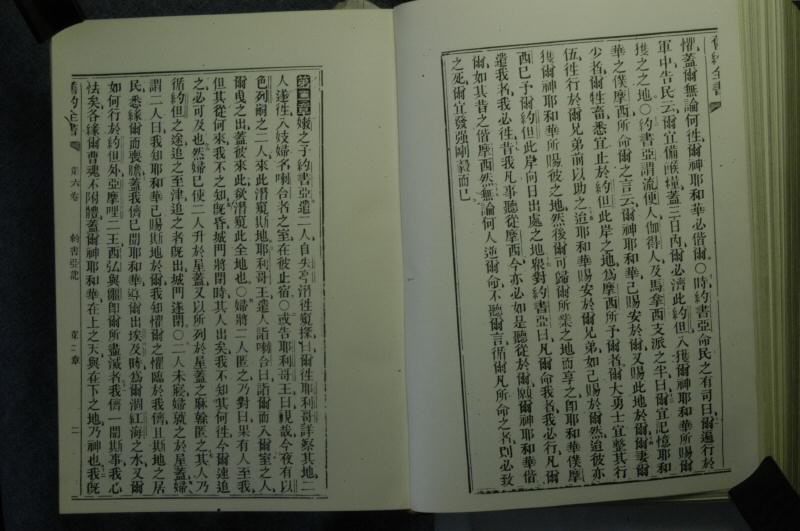 舊約全書
懼、蓋爾無論何往、爾神耶和華必偕爾○時約書亞命民之有司曰、爾遍行於
軍中告民云、爾宜備餱糧、蓋三日內爾必濟此約但、入獲爾神耶和華所賜爾
獲之之地○約書亞謂流便人、伽得人、及馬拿西支派之半曰、爾宜記憶耶和
華之僕摩西所命爾之言云、爾神耶和華已賜安於爾、又賜此地於爾、爾妻爾
少者爾牲畜、悉宜止於約但此岸之地、爲摩西所予爾者、爾大勇士宜整其行
伍、往行於爾兄弟前以助之、迨耶和華賜安於爾兄弟、如己賜於爾然、迨彼亦
獲爾神耶和華所賜彼之地、然後爾可歸爾所業之地而享之、卽耶和華僕摩
西已予爾約但此岸向日出處之地、衆對約書亞曰、凡爾命我者、我必行、凡爾
遣我者、我必往、昔我凡事聽從摩西、今亦必如是聽從於爾、願爾神耶和華偕
爾、如其昔之偕摩西然、無論何人逆爾命、不聽爾言、循爾凡所命之者、則必致
之死、爾宜發强剛毅而已、
第二章 嫩之子約書亞遣二人、自失亭潛往窺探、曰、爾往耶利哥詳察其地、二
人遂往、入妓婦名喇合者之室、在彼止宿○或告耶利哥王曰、視哉、今夜有以
色列嗣之二人、來此潛窺斯地、耶利哥王遣人詣喇合曰、詣爾而入爾室之人、
爾曳之出、蓋彼來此、欲潛窺此全地也○婦將二人匿之、乃對曰、果有人至我、
但其從何來、我不之知、旣昏、城門將閉時、其人出矣、我不知其何往、今爾速追
之、必可及也、然婦已使二人升於屋蓋、又以所列於屋蓋之麻榦匿之、其人乃
循約但之途追之至津、追之者旣出、城門遂閉○二人未寢、婦就之於屋蓋、婦
謂二人曰、我知耶和華已賜斯地於爾、我知懼爾之懼臨於我儕、且斯地之居
民、悉緣爾而喪膽、蓋我儕已聞耶和華、導爾出埃及時、爲爾涸紅海之水、又爾
如何行於約但外、亞摩哩二王西弘與噩、卽爾所盡滅者、我儕一聞斯事、我心
怯矣、各緣爾曹魂不附體、蓋爾神耶和華、在上之天、與在下之地、乃神也、我旣
舊約全書 第六卷 約書亞記 第二章 二